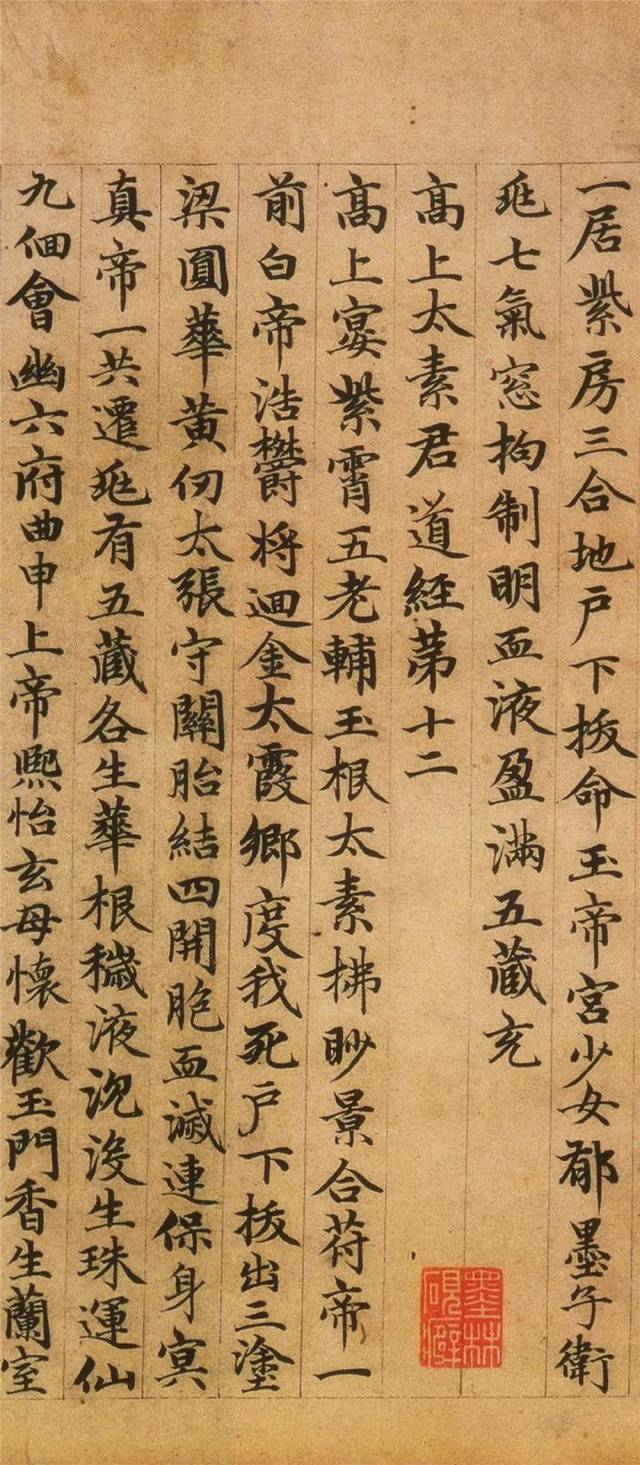 一居紫房三合地戶下拔命玉帝宮少女郁墨子衛
兆七氣窓拘制明血液盈滿五藏充
高上太素君道經苐十二
高上宴紫霄五老輔玉根太素拂眇景合苻帝一
前白帝浩欝將迴金太霞鄉度我死戶下拔出三塗
梁圓華黃仞太張守關胎結四開胞血滅連保身冥
真帝一共遷兆有五藏各生華根穢液沉没生珠運仙
九佪會幽六府曲申上帝熙怡玄母懷歡玉門香生蘭室
墨林
硯癖